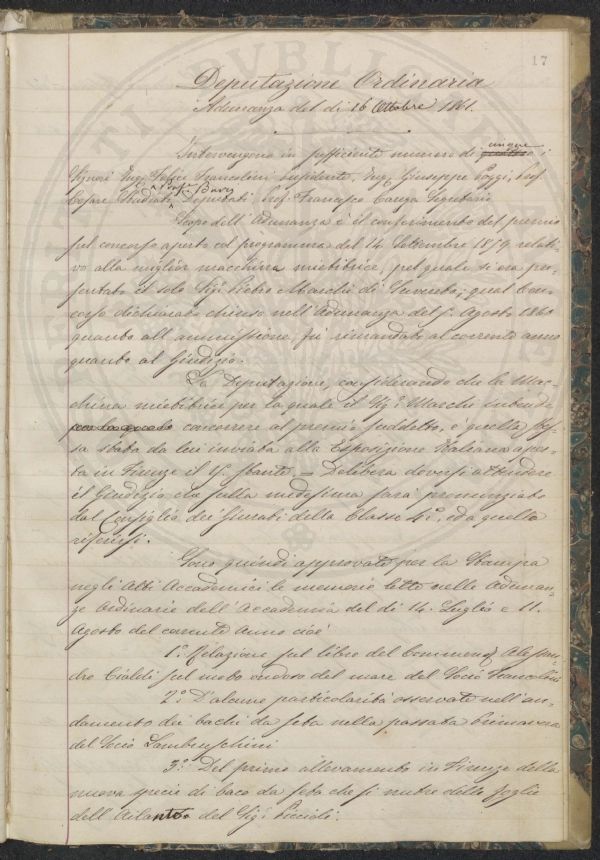 17
Deputazione Ordinaria
Adunanza del dì 16 Ottobre 1861.
Intervengono in sufficiente numero di cinque i
Signori Ingr. Felice Francolini Presidente, Ingr. Giuseppe Poggi, Prof.
Cesare Studiati, Deputati, Prof. Francesco Carega Segretario
Scopo dell'Adunanza è il conferimento del premio
sul concorso aperto col programma del 14 Settembre 1859 relati-
vo alla miglior macchina mietitrice, pel quale si era pre-
sentato il solo Sigr. Pietro Marchi di Suvereto; qual Con-
corso dichiarato chiuso nell'Adunanza del 5. Agosto 1860
quanto all'ammissione, fu rimandato al corrente anno
quanto al Giudizio.
La Deputazione, considerando che la Mac-
china mietitrice per la quale il Sigr. Marchi intende
concorrere al premio suddetto, è quella stes-
sa stata da lui inviata alla Esposizione Italiana aper-
ta in Firenze il 15 stante, — Delibera doversi attendere
il Giudizio che sulla medesima sarà pronunziato
dal Consiglio dei Giurati della Classe 4a., ed a quello
riferirsi.
Sono quindi approvate per la Stampa
negli Atti Accademici le memorie lette nelle Adunan-
ze Ordinarie dell'Accademia del dì 14. Luglio e 11.
Agosto del corrente Anno cioè
1o. Relazione sul libro del Commend. Alessan-
dro Cialdi sul moto ondoso del mare del Socio Francolini
2o. D'alcune particolarità osservate nell'an-
damento dei bachi da seta nella passata Primavera
del Socio Lambruschini
3o. Del primo allevamento in Firenze della
nuova specie di baco da seta che si nutre delle foglie
dell'Ailanto del Sigr. Piccioli.